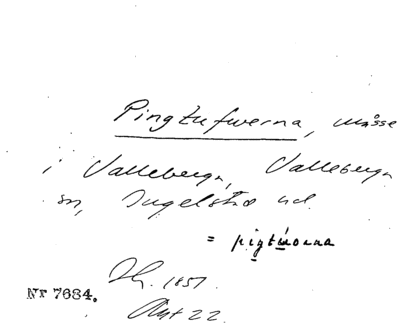 Pingtufwerna, mosse
i Valleberga, Valleberga
sn, Ingelstad hd.
= pigtuorna
1851.
Nr 7684.
Akt 22.